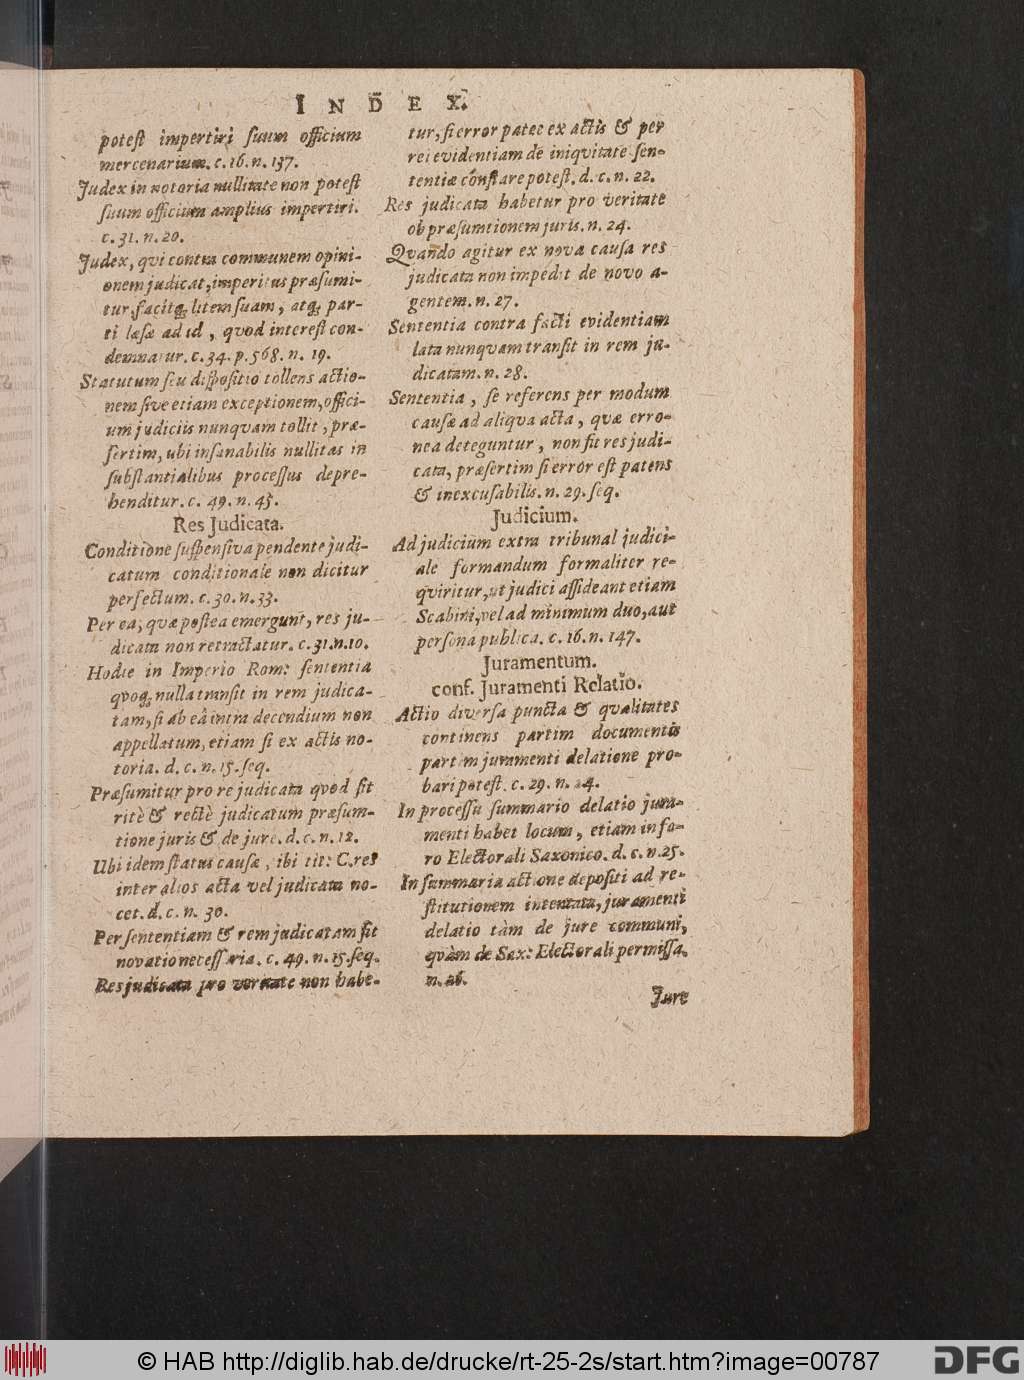 INDEX.
potest impertiri suum officium
mercenarium. c. 16. n. 137.
Judex in notoria nullitate non potest
suum officium amplius impertiri.
c. 31. n. 20.
Judex, qvi contra communem opini-
onem judicat, imperitus præsumi-
tur, facitq; litem suam, atq; par-
ti læsæ ad id, qvod interest con-
demnatur. c. 34. p. 568. n. 19.
Statutum seu dispositio tollens actio-
nem sive etiam exceptionem, offici-
um judiciis nunqvam tollit, præ-
sertim, ubi insanabilis nullitas in
substantialibus processus depre-
henditur. c. 49. n. 43.
Res Judicata.
Conditione suspensiva pendente judi-
catum conditionale non dicitur
perfectum. c. 30. n. 33.
Per ea, qvæ postea emergunt, res ju-
dicata non retractatur. c. 31. n. 10.
Hodie in Imperio Rom: sententia
qvoq; nulla transit in rem judica-
tam, si ab eâ intra decendium non
appellatum, etiam si ex actis no-
toria. d. c. n. 15. seq.
Præsumitur pro re judicata qvod sit
ritè & rectè judicatum præsum-
tione juris & de jure. d. c. n. 12.
Ubi idem status causæ, ibi tit: C. res
inter alios acta vel judicata no-
cet. d. c. n. 30.
Per sententiam & rem judicatam fit
novatio necessaria. c. 49. n. 15. seq.
Res judicata pro veritate non habe-
tur, si error patet ex actis & per
rei evidentiam de iniqvitate sen-
tentiæ constare potest. d. c. n. 22.
Res judicata habetur pro veritate
ob præsumtionem juris. n. 24.
Qvando agitur ex nova causa res
judicata non impedit de novo a-
gentem. n. 27.
Sententia contra facti evidentiam
lata nunqvam transit in rem ju-
dicatam. n. 28.
Sententia, se referens per modum
causæ ad aliqva acta, qvæ erro-
nea deteguntur, non fit res judi-
cata, præsertim si error est patens
& inexcusabilis. n. 29. seq.
Judicium.
Ad judicium extra tribunal judici-
ale formandum formaliter re-
qviritur, ut judici assideant etiam
Scabini, vel ad minimum duo, aut
persona publica. c. 16. n. 147.
Juramentum.
conf. Juramenti Relatio.
Actio diversa puncta & qvalitates
continens partim documentis
partim juramenti delatione pro-
bari potest. c. 29. n. 24.
In processu summario delatio jura-
menti habet locum, etiam in fo-
ro Electorali Saxonico. d. c. n. 25.
In summaria actione depositi ad re-
stitutionem intentata, juramenti
delatio tàm de jure communi,
qvàm de Sax: Electorali permissa.
n. 26.
Jure
© HAB http://diglib.hab.de/drucke/rt-25-2s/start.htm?image=00787
DFG